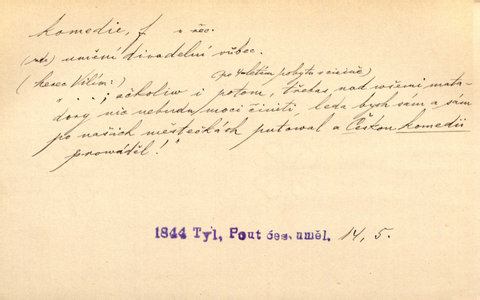 komedie, f. z řec.
(vůb.) umění divadelní vůbec.
(herec Vilím:) (po 4letém pobytu v cizině)
"...; ačkoliw i potom, třebas nad wšemi mata-
dory nic nebudu moci činiti, leda bych sám a sám
po našich městečkách putowal a Českou komedii
prowáděl!"
1844 Tyl, Pout čes. uměl. 14, 5.